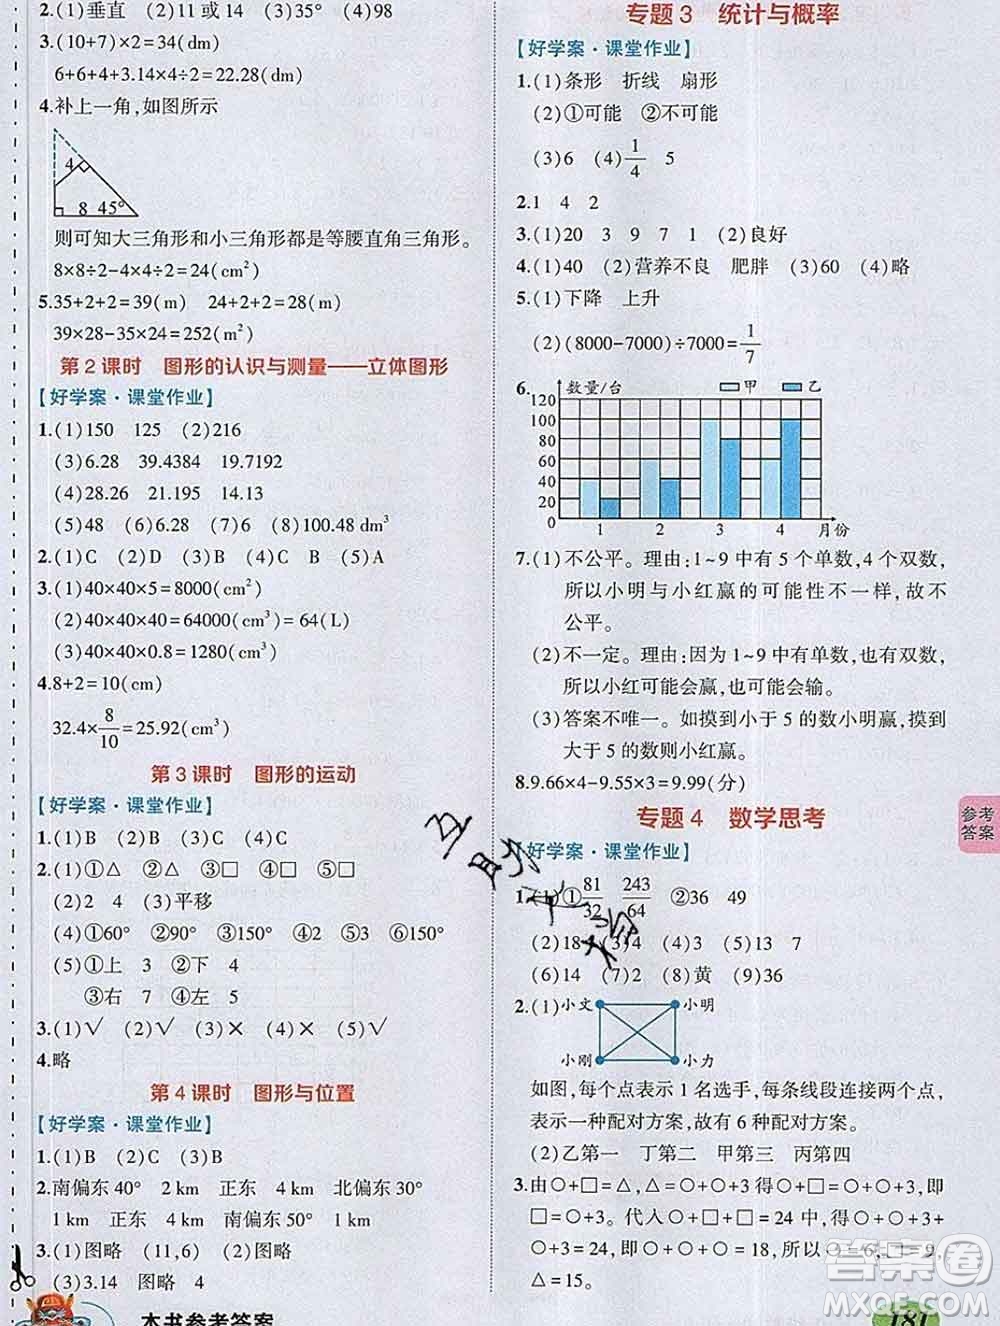 2.(1)垂直　(2)11或14　(3)35°　(4)98
3.(10+7)×2=34(dm)
6+6+4+3.14×4÷2=22.28(dm)
4.补上一角,如图所示
4
8　45°
则可知大三角形和小三角形都是等腰直角三角形。
8×8÷2-4×4÷2=24(cm²)
5.35+2+2=39(m)　24+2+2=28(m)
39×28-35×24=252(m²)
第2课时　图形的认识与测量——立体图形
【好学案·课堂作业】
1.(1)150　125　(2)216
(3)6.28　39.4384　19.7192
(4)28.26　21.195　14.13
(5)48　(6)6.28　(7)6　(8)100.48 dm³
2.(1)C　(2)D　(3)B　(4)C　B　(5)A
3.(1)40×40×5=8000(cm³)
(2)40×40×40=64000(cm³)=64(L)
(3)40×40×0.8=1280(cm³)
4.8+2=10(cm)
32.4×8/10=25.92(cm³)
第3课时　图形的运动
【好学案·课堂作业】
1.(1)B　(2)B　(3)C　(4)C
2.(1)①△　②△　③□　④○　⑤□
(2)2　4　(3)平移
(4)①60°　②90°　③150°　④60°
(5)①上　3　②下　4
③右　7　④左　5
3.(1)✓　(2)✓　(3)×　(4)×　(5)✓
4.略
第4课时　图形与位置
【好学案·课堂作业】
1.(1)B　(2)C　(3)B
2.南偏东40°　2 km　正东　4 km　北偏东30°
1 km　正东　4 km　南偏东50°　1 km
3.(1)图略　(11,6)　(2)图略
(3)3.14　图略　4
本书参考答案
专题3　统计与概率
【好学案·课堂作业】
1.(1)条形　折线　扇形
(2)①可能　②不可能
(3)6　(4)1/4　5
2.1　4　2
3.(1)20　3　9　7　1　(2)良好
4.(1)40　(2)营养不良　肥胖　(3)60　(4)略
5.(1)下降　上升
(2)(8000-7000)÷7000=1/7
6.　数量/台　甲　乙
120
100
80
60
40
20
0
1　2　3　4　月份
7.(1)不公平。理由:1~9中有5个单数,4个双数,
所以小明与小红赢的可能性不一样,故不
公平。
(2)不一定。理由:因为1~9中有单数,也有双数,
所以小红可能会赢,也可能会输。
(3)答案不唯一。如摸到小于5的数小明赢,摸到
大于5的数则小红赢。
8.9.66×4-9.55×3=9.99(分)
专题4　数学思考
【好学案·课堂作业】
1.(1)①81/32　243/64　②36　49
(2)18　(3)4　(4)3　(5)13　7
(6)14　(7)2　(8)黄　(9)36
2.(1)小文　小明
小刚　小力
如图,每个点表示1名选手,每条线段连接两个点,
表示一种配对方案,故有6种配对方案。
(2)乙第一　丁第二　甲第三　丙第四
3.由○+□=△,△=○+○+○得○+□=○+○+○,即
□=○+○。代入○+□+□=24中,得○+○+○+
○+○=24,即○+○+○+○=18,所以○=6,□=9,
△=15。
参考
答案
181
答案圈
MXQE.COM